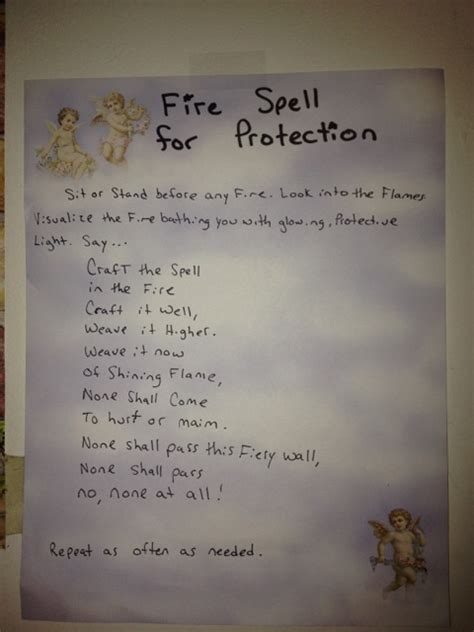 Fire Spell
for Protection
Sit or Stand before any Fire. Look into the Flames
Visualize the Fire bathing you with glowing, Protective
Light. Say...
Craft the Spell
in the Fire
Craft it well,
Weave it Higher.
Weave it now
Of Shining Flame,
None Shall Come
To hurt or maim.
None shall pass this Fiery wall,
None Shall pass
no, none at all!
Repeat as often as needed.